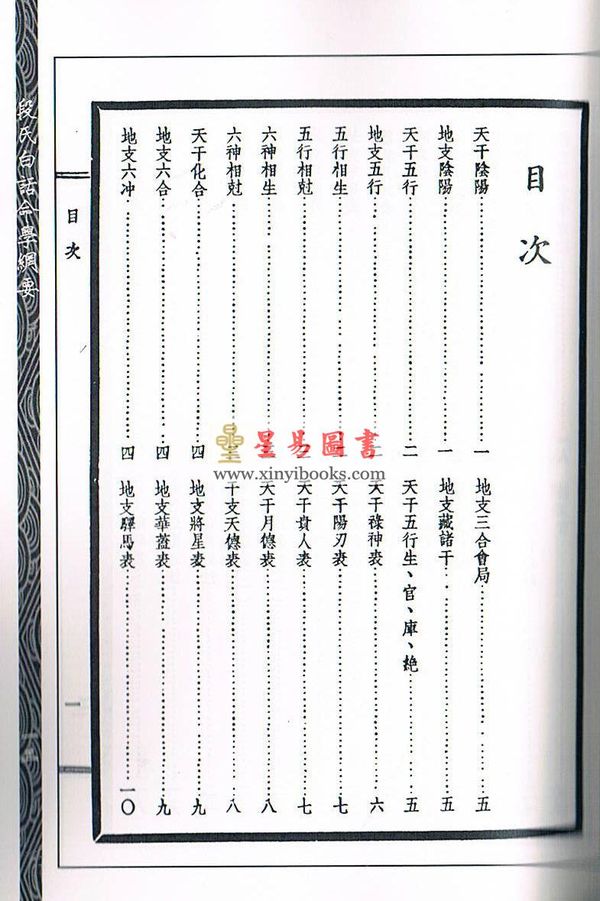 目次
天干陰陽……一
地支陰陽……一
天干五行……二
地支五行……
五行相生……
五行相尅……
六神相生……
六神相尅……
天干化合……四
地支六合……四
地支六冲……四
地支三合會局……五
地支藏諸干……五
天干五行生、官、庫、絶……五
天干祿神表……六
天干陽刃表……七
天干貴人表……七
天干月德表……八
干支天德表……八
地支將星表……九
地支華蓋表……九
地支驛馬表……一〇
目次
一
段氏白話命學綱要
星易圖書
www.xinyibooks.com